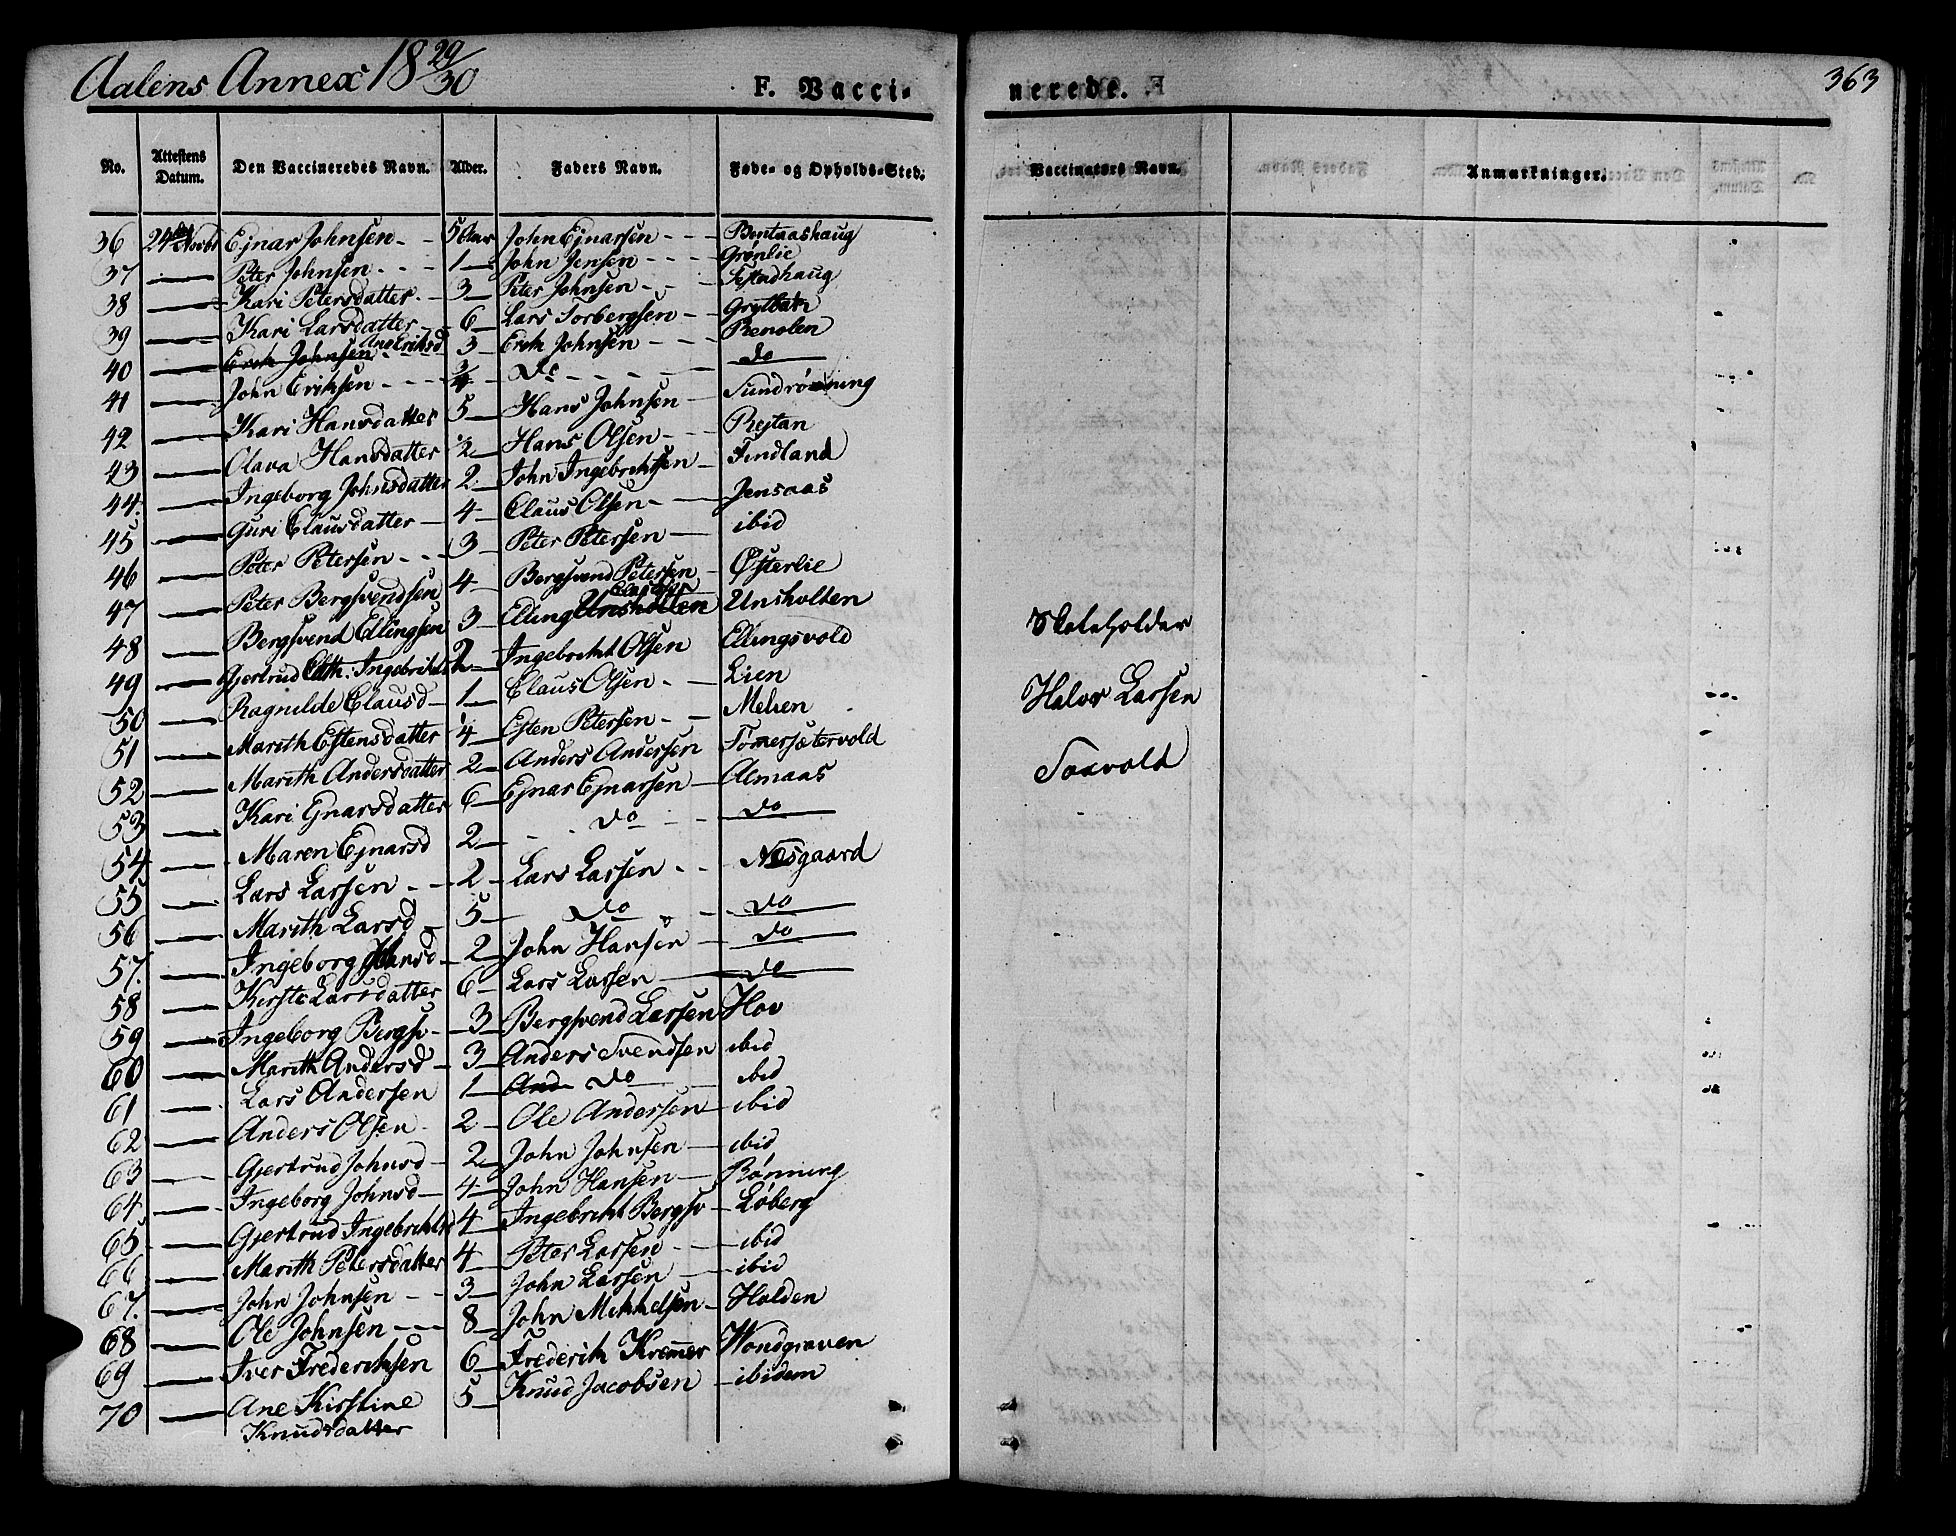 Aalens Annex 18 29/30
F. Vacci-
nerede.
363
No. Attestens Datum. Den Vaccineredes Navn. Alder. Faders Navn. Føde- og Opholds-Sted. Vaccinateurs Navn. Anmærkninger.
36 24 Novbr Ejnar Johnsen 5 Aar John Ejnarsen Bentaashaug
37 — Peter Johnsen 1 John Jensen Grønlie
38 — Kari Petersdatter 3 Peter Johnsen
39 — Kari Larsdatter 6 Lars Torbergsen Grytbak
40 — Erik Johnsen Ane Eriksd 3 Erik Johnsen Renolen
41 — John Eriksen 3/4 Do Do
42 — Kari Hansdatter 5 Hans Johnsen Sundrønning
43 — Olava Hansdatter 1/2 Hans Olsen Rejtan
44 — Ingeborg Johnsdatter 2 John Ingebrichtsen Finland
45 — Guri Clausdatter 4 Claus Olsen Jensaas
46 — Peter Petersen 3 Peter Petersen ibid
47 — Peter Bergsvendsen 4 Bergsvend Petersen Østerlie
48 — Bergsvend Ellingsen 3 Elling Unsholten Unsholten
49 — Gjertrud Ingebrichtsd 2 Ingebricht Olsen Ellingsvold
50 — Ragnilde Clausd 1 Claus Olsen Lien
51 — Marith Estensdatter 1/4 Esten Petersen Melien
52 — Marith Andersdatter 2 Anders Andersen Tømersætervold
53 — Kari Ejnarsdatter 6 Ejnar Ejnarsen Almaas
54 — Maren Ejnarsd 2 Do Do
55 — Lars Larsen 2 Lars Larsen Næsgaard
56 — Marith Larsd 5 Do Do
57. — Ingeborg Johnsd 2 John Hansen Do
58 — Kirsti Larsdatter 6 Lars Larsen Do
59 — Ingeborg Bergsv 3 Bergsvend Larsen Hov
60 — Marith Andersd 3 Anders Svendsen ibid
61 — Lars Andersen 1 And Do ibid
62 — Anders Olsen 2 Ole Andersen ibid
63 — Gjertrud Johnsd 2 John Johnsen ibid
64 — Ingeborg Johnsd 4 John Hansen Rønning
65 — Gjertrud Ingebrichtsd 4 Ingebricht Bergsv Løberg
66 — Marith Petersdatter 4 Peter Larsen ibid
67. — John Johnsen 3 John Larsen ibid
68 — Ole Johnsen 8 John Mikkelsen Holden
69 — Iver Frederiksen 6 Frederik Kremer Wondgraven
70 — Ane Kirstine Knudsdatter 5 Knud Jacobsen ibidem
Skoleholder
Halvor Larsen
Saxvold